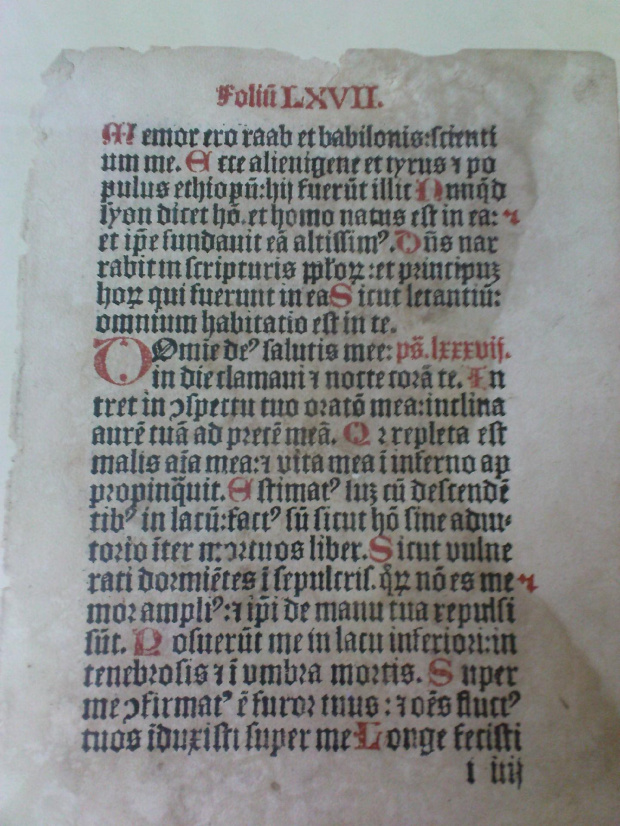 Foliũ LXVII.
Memor ero raab et babilonis: scienti
um me. Ecce alienigene et tyrus ⁊ po
pulus ethiopũ: hij fuerũt illic Nunq̃d
syon dicet hõ. et homo natus est in ea: ⁊
et ip̃e fundauit eã altissimꝰ. Dñs nar
rabit in scripturis pp̃loꝝ: et principuꝫ
hoꝝ qui fuerunt in ea Sicut letantiũ:
omnium habitatio est in te.
Domĩe deꝰ salutis mee: ps̃. lxxxvij.
in die clamaui ⁊ nocte corã te. In
tret in ꝯspectu tuo oratõ mea: inclina
aurẽ tuã ad precẽ meã. Qꝛ repleta est
malis aĩa mea: ⁊ vita mea ĩ inferno ap
propinq̃uit. Estimatꝰ suꝫ cũ descendẽ
tibꝰ in lacũ: factꝰ sũ sicut hõ sine adiu-
torio ĩter mortuos liber. Sicut vulne
rati dormiẽtes ĩ sepulcris. q̃ꝝ nõ es me ⁊
mor ampliꝰ: ⁊ ip̃i de manu tua repulsi
sũt. Posuerũt me in lacu inferiori: in
tenebrosis ⁊ ĩ vmbra mortis. Super
me ꝯfirmatꝰ ẽ furor tuus: ⁊ oẽs fluctꝰ
tuos ĩduxisti super me Longe fecisti
l iiij